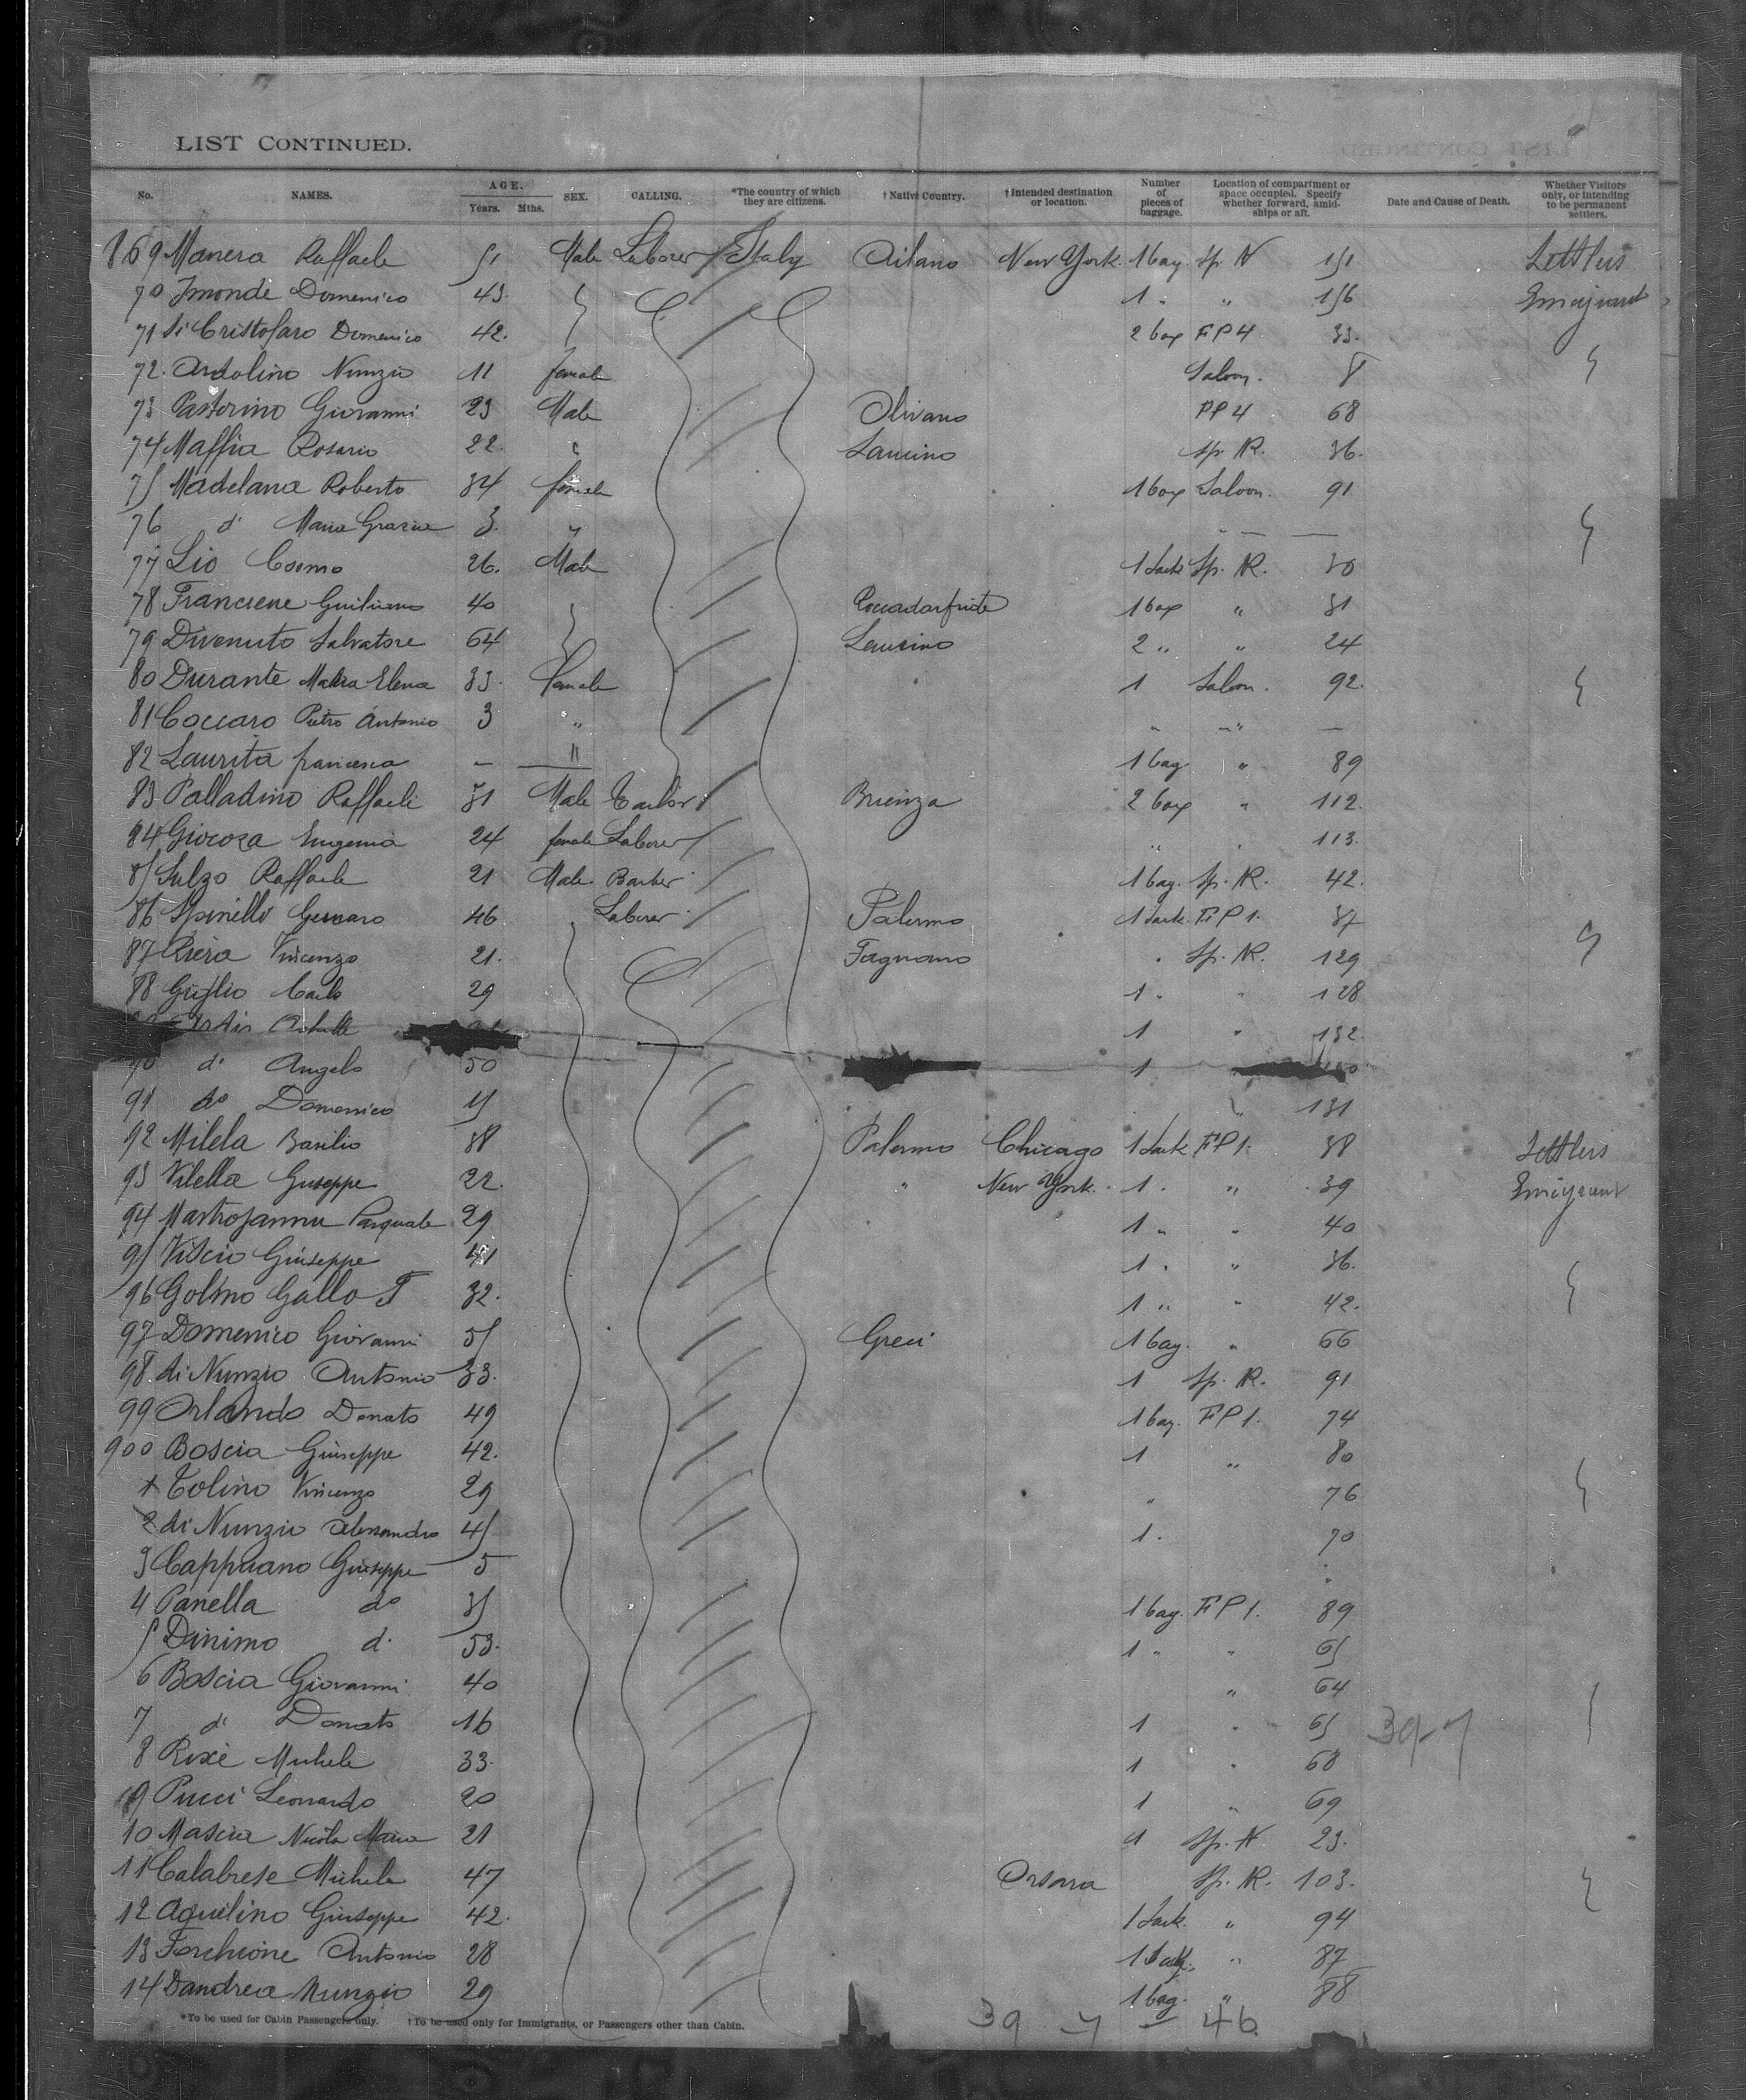 LIST CONTINUED.
No. NAMES. AGE. Years. Mths. SEX. CALLING. *The country of which they are citizens. †Native Country. †Intended destination or location. Number of pieces of baggage. Location of compartment or space occupied. Specify whether forward, amidships or aft. Date and Cause of Death. Whether Visitors only, or intending to be permanent settlers.
869 Manera Raffaele 51 Male Laborer Italy Ailano New York 1 bag Sp. N 151 Settlers
70 Imonde Domenico 43. 1 " " 156 Emigrant
71 di Cristofaro Domenico 42. 2 box FP4 33.
72. Ardolino Nunzio 11 female Saloon. 8
73 Pastorino Giovanni 23 Male Olivano PP4 68
74 Maffia Rosario 22. " Laurino Sp. R. 36.
75 Madelana Roberto 34 female 1 box Saloon. 91
76 d° Maria Grazia 3. " — —
77 Lio Cosmo 26. Male 1 Sack Sp. R. 30
78 Franciene Guiliano 40 1 box " 31
79 Divenuto Salvatore 64 Laurino 2 " " 24
80 Durante Maria Elena 33. Female 1 Saloon. 92.
81 Coccaro Pietro Antonio 3 " " " —
82 Laurita francesca — " 1 bag " 89
83 Palladino Raffaele 31 Male Tailor Brienza 2 box " 112.
84 Giocosa Eugenia 24 female Laborer " " 113.
85 Sulzo Raffaele 21 Male. Barber 1 bag. Sp. R. 42.
86 Spinelli Gennaro 46 Laborer Palermo 1 Sack. FP1. 37
87 Riera Vincenzo 21. Fagnano " Sp. R. 129
88 Giglio Carlo 29 1 " " 128
Achille 1 " 132.
90 d° Angelo 50 1
91 do Domenico 15 " 131
92 Milela Basilio 38 Palermo Chicago 1 Sack FP1. 38 Settlers
93 Vilella Guseppe 22. " New York. 1 " " 39 Emigrant
94 Mastrojannu Pasquale 29 1 " " 40
95 Viscio Giuseppe 41 1 " " 36.
96 Golino Gallo F 32. 1 " " 42.
97 Domenico Giovanni 55 Greci 1 bag. " 66
98. di Nunzio Antonio 33. 1 Sp. R. 91
99 Orlando Donato 49 1 bag. FP1. 74
900 Boscia Giuseppe 42. 1 " 80
1 Tolino Vincenzo 29 " 76
2 di Nunzio Alessandro 45 1. 70
3 Cappuano Giuseppe 5 "
4 Panella do 35 1 bag. FP1. 89
5 Dinimo d° 53. 1 " " 65
6 Boscia Giovanni 40 " 64
7 d° Donato 16 1 " 65 39-7
8 Rixe Michele 33. 1 " 68
9 Pucci Leonardo 20 1 " 69
10 Mascia Nicola Maria 21 1 Sp. N. 23.
11 Calabrese Michele 47 Orsara Sp. R. 103.
12 Aquilino Giuseppe 42. 1 Sack. " 94
13 Forchione Antonio 28 1 Sack. " 87
14 Dandrea Nunzio 29 1 bag. " 88
39 7 = 46
*To be used for Cabin Passengers only. †To be used only for Immigrants, or Passengers other than Cabin.